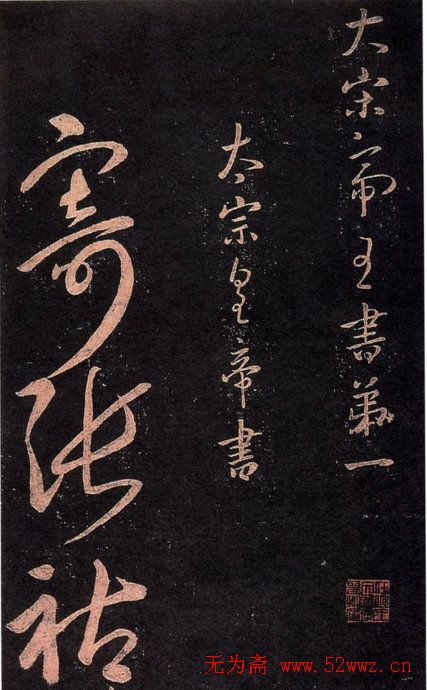 大宋帝王書第一
太宗皇帝書
寄張祜
无为斋 www.52wwz.cn